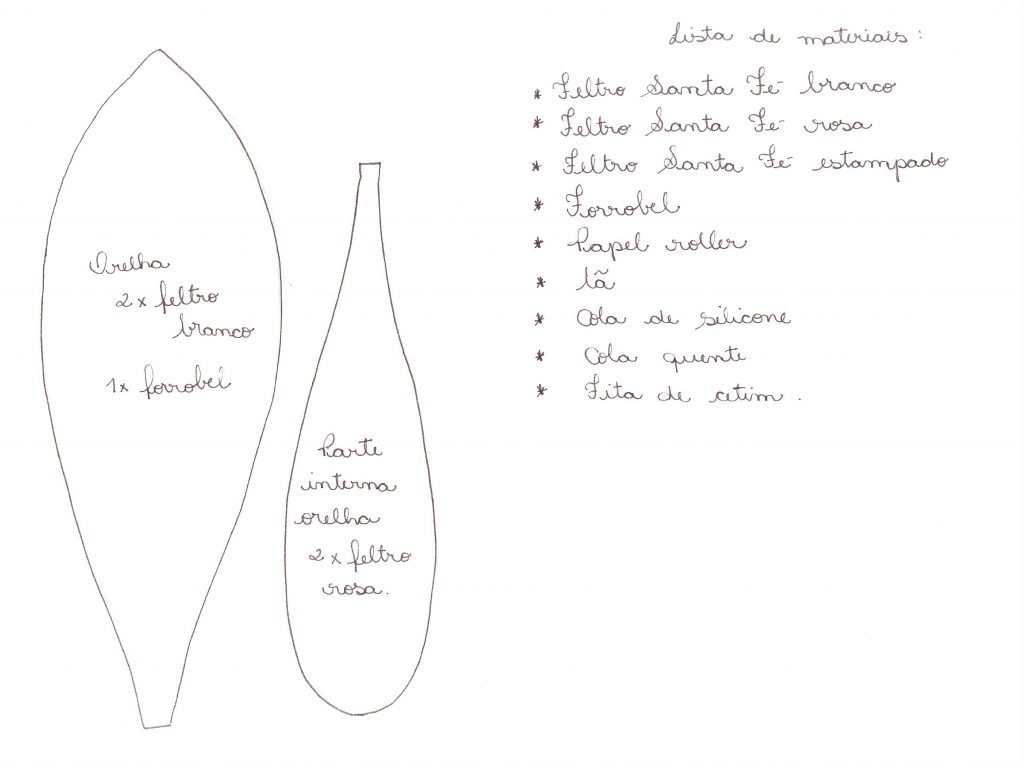 Lista de materiais:
* Feltro Santa Fé branco
* Feltro Santa Fé rosa
* Feltro Santa Fé estampado
* Forrobel
* Papel roller
* lã
* Cola de silicone
* Cola quente
* Fita de cetim.
Orelha
2x feltro
branco
1x forrobel
Parte
interna
orelha
2x feltro
rosa.